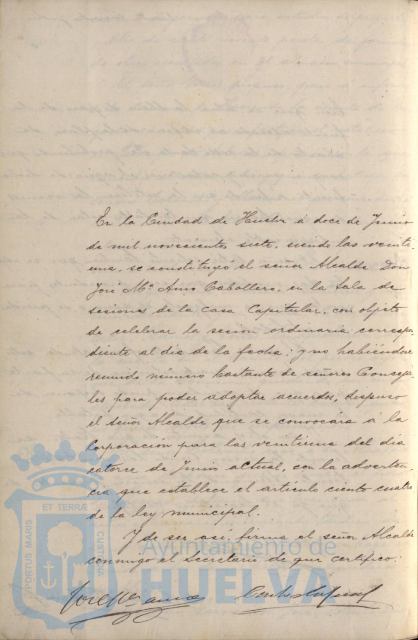 En la Ciudad de Huelva á doce de Junio
de mil novecientos siete, siendo las veinte
una, se constituyó el señor Alcalde Don
José Mª Amo Caballero, en la Sala de
sesiones de la casa Capitular, con objeto
de celebrar la sesion ordinaria correspon
diente al dia de la fecha; y no habiendose
reunido número bastante de señores Conceja
les para poder adoptar acuerdos, dispuso
el señor Alcalde que se convocára á la
Corporación para las veintiuna del dia
catorce de Junio actual, con la adverten
cia que establece el articulo ciento cuatro
de la ley municipal.
Y de ser así, firma el señor Alcalde
conmigo el Secretario de que certifico:
José Mª Amo
PORTUS MARIS
ET TERRÆ
CUSTODIA
Ayuntamiento de
HUELVA